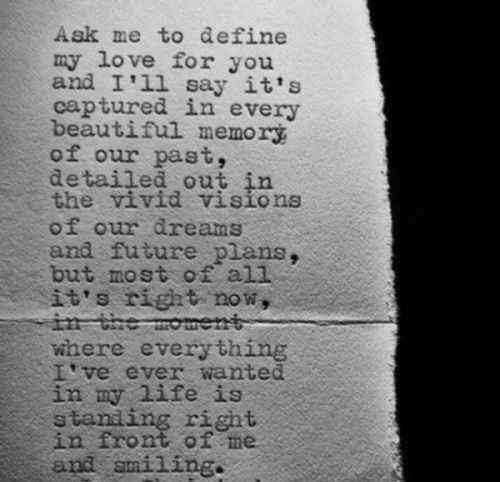 Ask me to define
my love for you
and I'll say it's
captured in every
beautiful memory
of our past,
detailed out in
the vivid visions
of our dreams
and future plans,
but most of all
it's right now,
in the moment
where everything
I've ever wanted
in my life is
standing right
in front of me
and smiling.